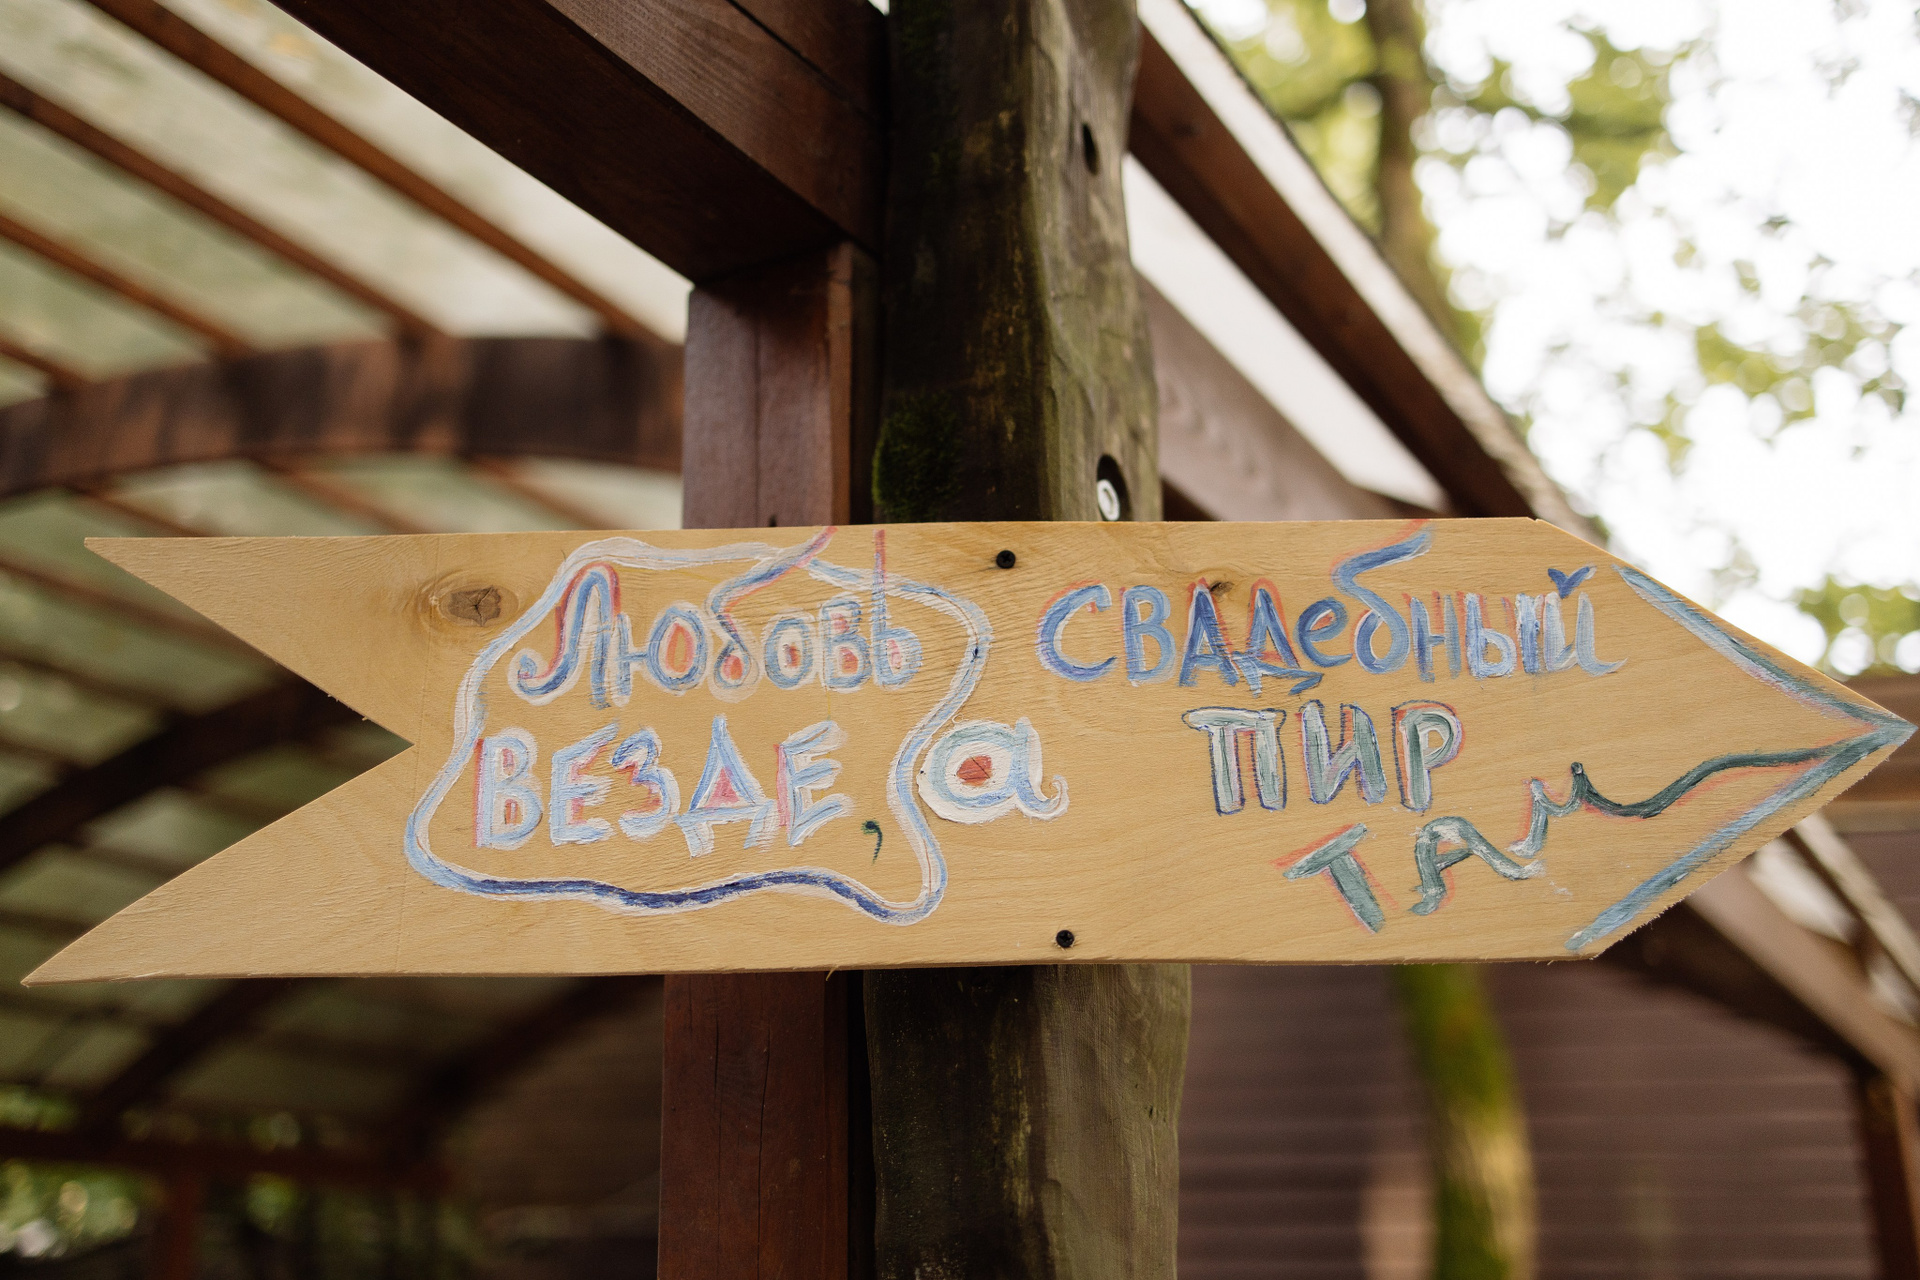 Любовь
ВЕЗДЕ, а
СВАДебНЫй
ПИР
ТАм